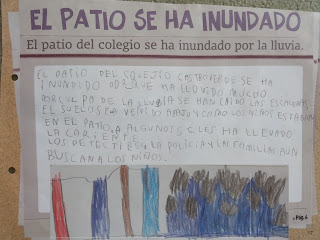 EL PATIO SE HA INUNDADO
El patio del colegio se ha inundado por la lluvia.
EL PATIO DEL COLEJIO CASTROVERDE SE HA
INUNDIDO PORQUE HA LLUVIDO MUCHO.
POR CULPA DE LA LLUVIA SE HAN CAIDO LAS ESCALERAS
EL SUELO SE HA Y COMO LOS NIÑOS ESTABAN
EN EL PATIO A ALGUNOS LES HA LLEVADO
LA CORIENTE.
LOS DETECTIBES LA POLICIA Y LAS FAMILIAS AUN
BUSCAN A LOS NIÑOS.